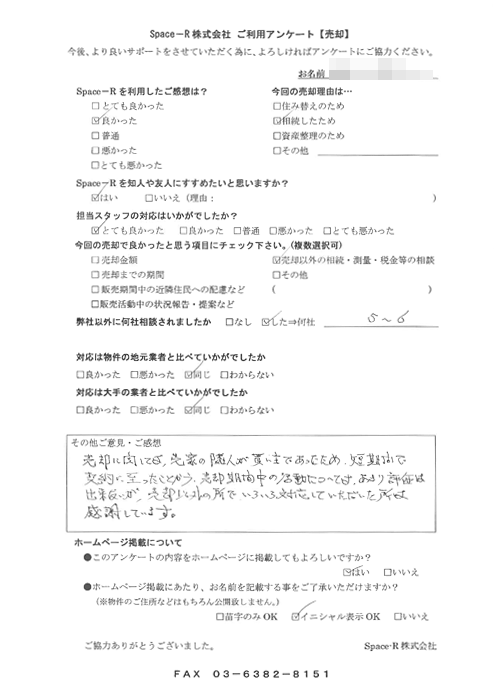 Space－R 株式会社 ご利用アンケート【売却】
今後、より良いサポートをさせていただく為に、よろしければアンケートにご協力ください。
お名前
Space－R を利用したご感想は？ 今回の売却理由は…
□とても良かった □住み替えのため
☑良かった ☑相続したため
□普通 □資産整理のため
□悪かった □その他
□とても悪かった
Space－R を知人や友人にすすめたいと思いますか？
☑はい □いいえ（理由： ）
担当スタッフの対応はいかがでしたか？
☑とても良かった □良かった □普通 □悪かった □とても悪かった
今回の売却で良かったと思う項目にチェック下さい。（複数選択可）
□売却金額 ☑売却以外の相続・測量・税金等の相談
□売却までの期間 □その他
□販売期間中の近隣住民への配慮など （ ）
□販売活動中の状況報告・提案など
弊社以外に何社相談されましたか □なし ☑した⇒何社 5～6
対応は物件の地元業者と比べていかがでしたか
□良かった □悪かった ☑同じ □わからない
対応は大手の業者と比べていかがでしたか
□良かった □悪かった ☑同じ □わからない
その他ご意見・ご感想
売却に関しては、売家の隣人が買い主であったため、短期間で
契約に至ったことから、売却期間中の活動については、あまり評価は
出来ないが、売却以外の所で、いろいろ対応していただいた所は
感謝しています。
ホームページ掲載について
●このアンケートの内容をホームページに掲載してもよろしいですか？
☑はい □いいえ
●ホームページ掲載にあたり、お名前を記載する事をご了承いただけますか？
（※物件のご住所などはもちろん公開致しません。）
□苗字のみ OK ☑イニシャル表示 OK □いいえ
ご協力ありがとうございました。 Space-R 株式会社
FAX 03－6382－8151